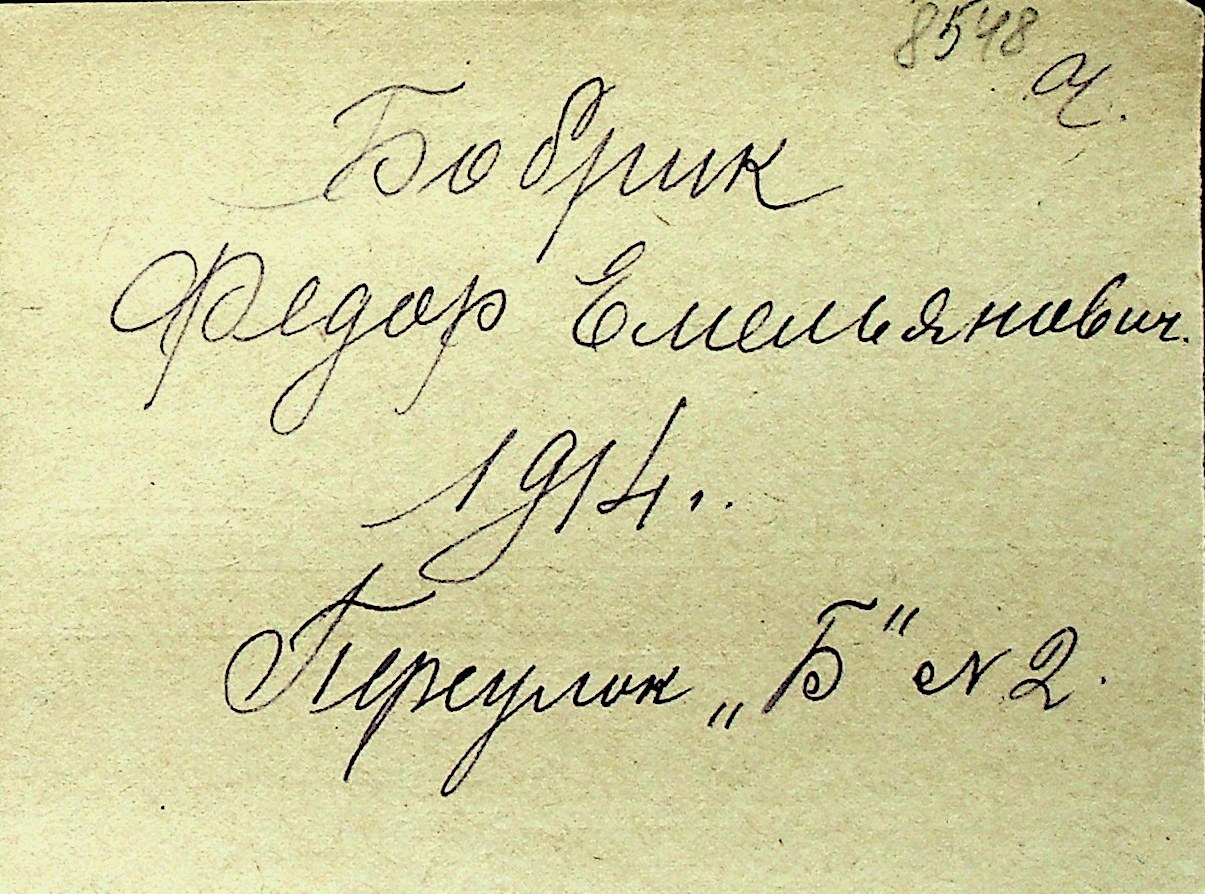 8548
ч.
Бобрик
Федор Емельянович.
1914..
Переулок „Б“ N 2.